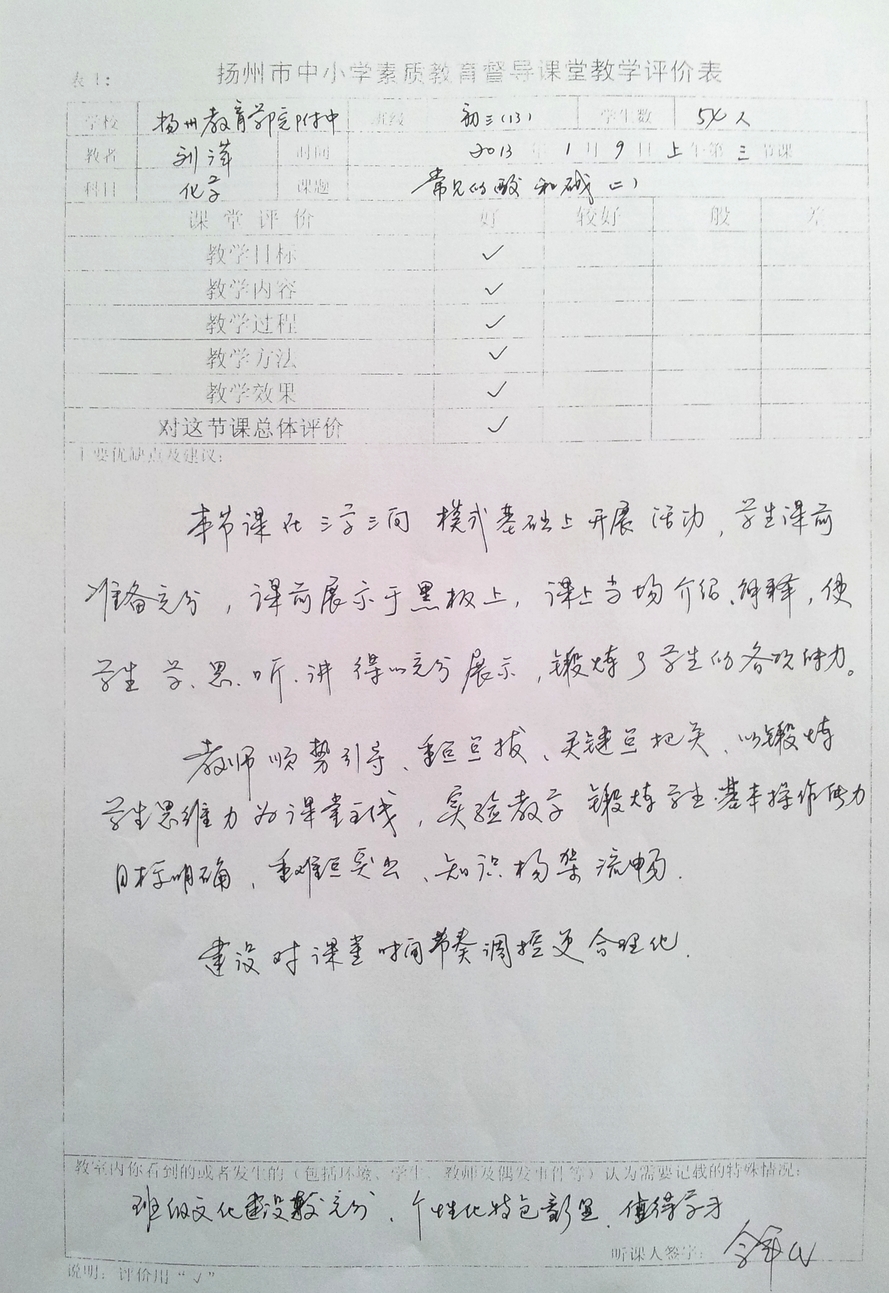 表1:
扬州市中小学素质教育督导课堂教学评价表
学校 扬州教育学院附中 班级 初三(13) 学生数 54人
教者 刘洋 时间 2013年1月9日上午第三节课
科目 化学 课题 常见的酸和碱(二)
课堂评价 好 较好 一般 差
教学目标 ✓
教学内容 ✓
教学过程 ✓
教学方法 ✓
教学效果 ✓
对这节课总体评价 ✓
主要优缺点及建议:
本节课在三学三问模式基础上开展活动,学生课前
准备充分,课前展示于黑板上,课上当场介绍、解释,使
学生学、思、听、讲得以充分展示,锻炼了学生的各项能力。
教师顺势引导、重点点拔、关键点把关、以锻炼
学生思维力为课堂主线,实验教学锻炼学生基本操作能力
目标明确、重难点突出、知识框架流畅.
建设对课堂时间节奏调控更合理化.
教室内你看到的或者发生的(包括环境、学生、教师及偶发事件等)认为需要记载的特殊情况:
班级文化建设较充分、个性化特色彰显、值得学习
听课人签字:
说明:评价用“√”